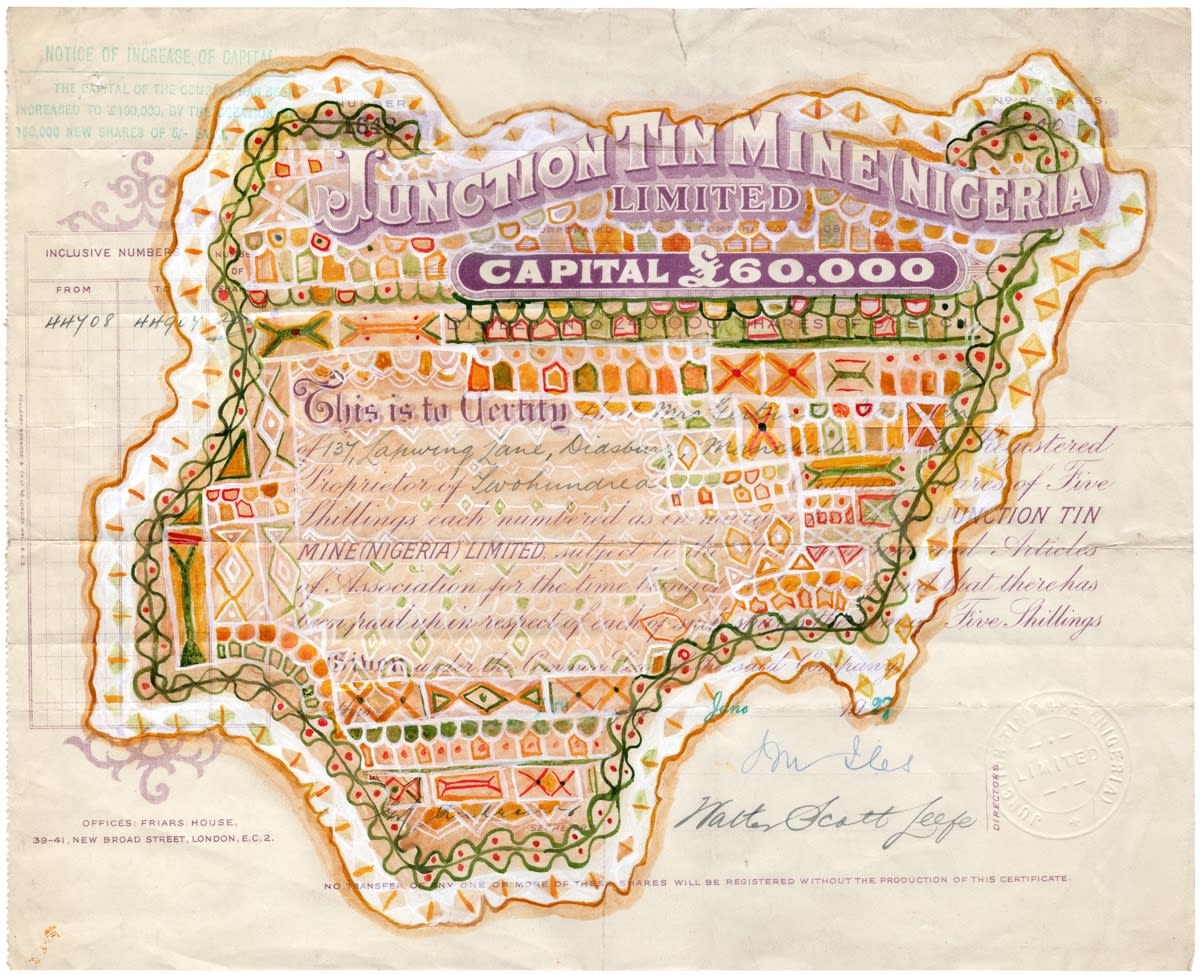 NOTICE OF INCREASE OF CAPITAL
THE CAPITAL OF THE COMPANY HAS BEEN
INCREASED TO £100,000, BY THE CREATION OF
160,000 NEW SHARES OF 5/- EACH
NUMBER
1643
NO OF SHARES.
JUNCTION TIN MINE (NIGERIA)
LIMITED
CAPITAL £60,000
DIVIDED INTO 240,000 SHARES OF 5/- EACH
INCLUSIVE NUMBERS
NUMBER OF SHARES
FROM TO
44708 44907
This is to Certify that Mrs
of 137, Lapwing Lane, Didsbury, Manchester Registered
Proprietor of Two hundred Shares of Five
Shillings each numbered as in margin JUNCTION TIN
MINE (NIGERIA) LIMITED, subject to the and Articles
of Association for the time being that there has
been paid up in respect of each of Five Shillings
Given under the Common Seal of the said Company
June 1927
Walter Scott Leefe
DIRECTORS
JUNCTION TIN MINE (NIGERIA)
LIMITED
SECRETARY
OFFICES: FRIARS HOUSE,
39-41, NEW BROAD STREET, LONDON, E.C.2.
NO TRANSFER OF ANY ONE OR MORE OF THESE SHARES WILL BE REGISTERED WITHOUT THE PRODUCTION OF THIS CERTIFICATE.